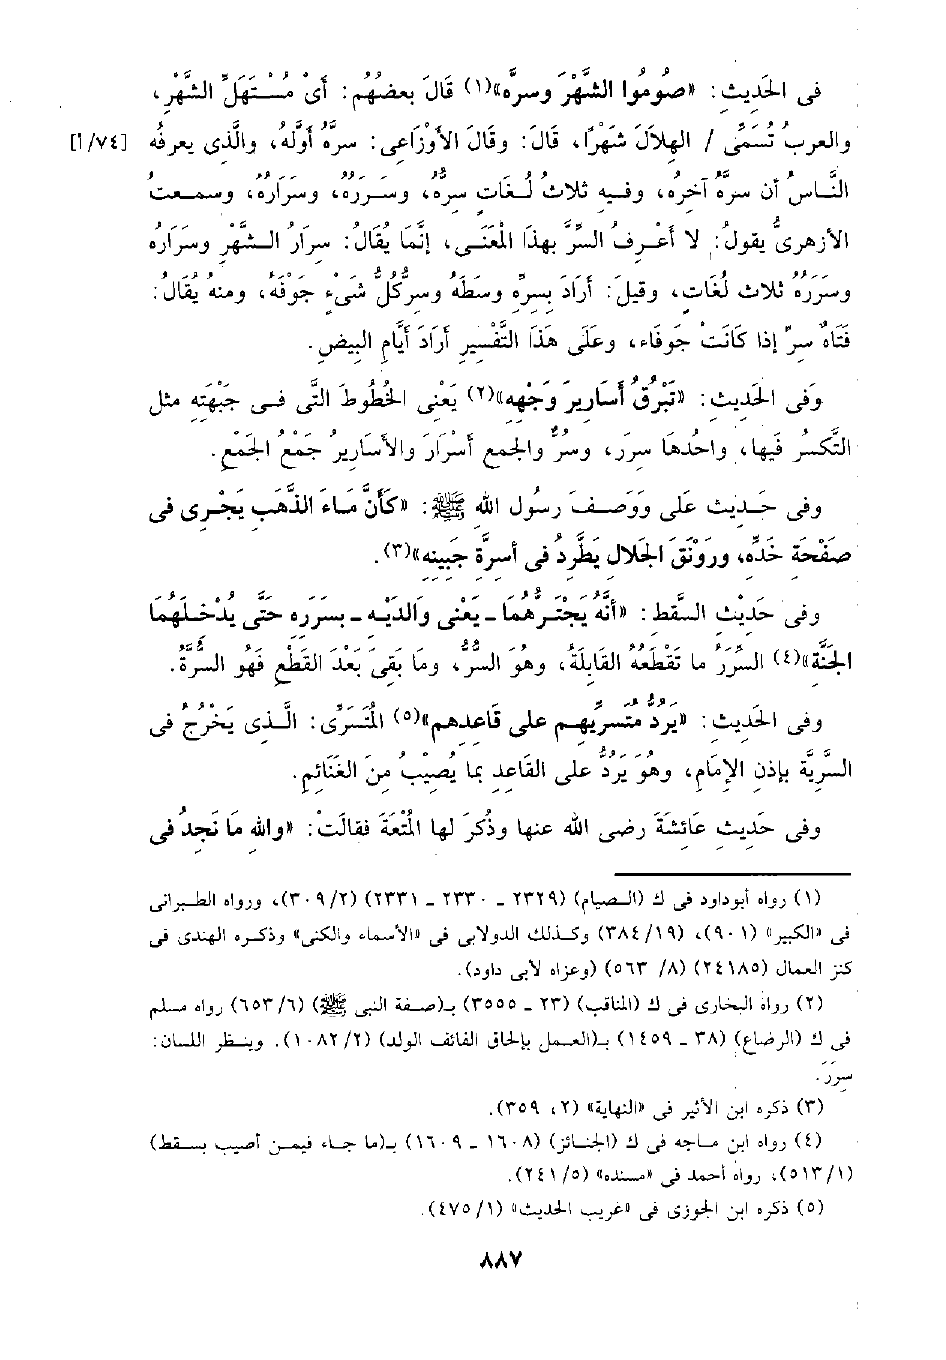 فى الحَدِيثِ: «صُومُوا الشَّهْرَ وسرَّه»(١) قَالَ بعضُهُم: أىْ مُسْتَهَلِّ الشَّهْرِ،
والعربُ تُسَمِّى / الهِلَالَ شَهْرًا، قَالَ: وقَالَ الأوْزَاعِى: سرُّهُ أوَّلُهُ، والَّذِى يعرِفُه [٧٤/أ]
النَّاسُ أن سرَّهُ آخرُه، وفيه ثلاثُ لُغَاتٍ سرُّه، وسَرَرُه، وسَرَارُه، وسمعتُ
الأزهرىَّ يقولُ: لا أعْرِفُ السِّرَّ بهذَا المَعْنَى، إنَّمَا يُقَالُ: سرَارُ الشَّهْرِ وسرَارُه
وسَرَرُهُ ثلاث لُغَاتٍ، وقيلَ: أرَادَ بسِرِّه وسَطَهُ وسرُّكُلِّ شَىْءٍ جَوْفُهُ، ومنهُ يُقَالُ:
قَنَاةٌ سرٌّ إذا كَانَتْ جَوفَاء، وعلَى هَذَا التَّفْسِيرِ أرَادَ أيَّامِ البيضِ.
وَفى الحَدِيثِ: «تَبْرُقُ أسَارِيرَ وَجْهِه»(٢) يَعْنِى الخُطُوطَ التَّى فى جَبْهَتِهِ مثل
التَّكسرُ فيهَا، واحُدهَا سرَر، وسرٌّ والجمع أسْرَارَ والأسَارِيرُ جَمْعُ الجَمْعِ.
وفى حَدِيثِ عَلى وَوَصفَ رسُول الله ﷺ: «كَأنَّ مَاءَ الذهَبِ يَجْرِى فى
صَفْحَةِ خَدِّه، ورَوْنَقَ الجَلالِ يَطَّرِدُ فى أسرَّةِ جَبِينِه»(٣).
وفى حَدِيْثِ السِّقط: «أنَّهُ يجْتَرُّهُمَا ـ يعْنِى وَالدَيْه ـ بسَرَرِه حتَّى يُدْخلَهُمَا
الجَنَّة»(٤) السَّرَرُ مَا تَقْطَعُهُ القَابلَةُ، وهُوَ السرُّ، ومَا بَقِىَ بَعْدَ القَطْعِ فَهُوَ السُّرَّةُ.
وفى الحَدِيثِ: «يَردُّ مُتَسرِّيهِم عَلى قَاعِدِهم»(٥) المُتَسَرِّى: الَّذِى يَخْرُجُ فى
السَّرِيَّةِ بإذنِ الإمَامِ، وهُوَ يَرُدُّ على القَاعِدِ بمَا يُصِيْبُ مِنَ الغَنَائِمِ.
وفى حَدِيثِ عَائشَةَ رضى الله عنها وذُكِرَ لها المُتْعَةَ فقَالَتْ: «والله مَا نَجدُ فى
(١) رواه أبوداود فى ك (الصيام) (٢٣٢٩ ـ ٢٣٣٠ ـ ٢٣٣١) (٣٠٩/٢)، ورواه الطبرانى
فى «الكبير» (٩٠١)، (٣٨٤/١٩) وكذلك الدولابى فى «الأسماء والكنى» وذكره الهندى فى
كنز العمال (٢٤١٨٥) (٨/ ٥٦٣) (وعزاه لابى داود).
(٢) رواه البخارى فى ك (المناقب) (٢٣ ـ ٣٥٥٥) بـ(صفة النبى ﷺ) (٦٥٣/٦) رواه مسلم
فى ك (الرضاع) (٣٨ ـ ١٤٥٩) بـ(العمل بإلحاق القائف الولد) (١٠٨٢/٢). وينظر اللسان:
سرَرَ.
(٣) ذكره ابن الأثير فى «النهاية» (٢، ٣٥٩).
(٤) رواه ابن ماجه فى ك (الجنائز) (١٦٠٨ ـ ١٦٠٩) بـ(ما جاء فيمن أصيب بسقط)
(٥١٣/١)، رواه أحمد فى «مسنده» (٢٤١/٥).
(٥) ذكره ابن الجوزى فى «غريب الحديث» (٤٧٥/١).
٨٨٧